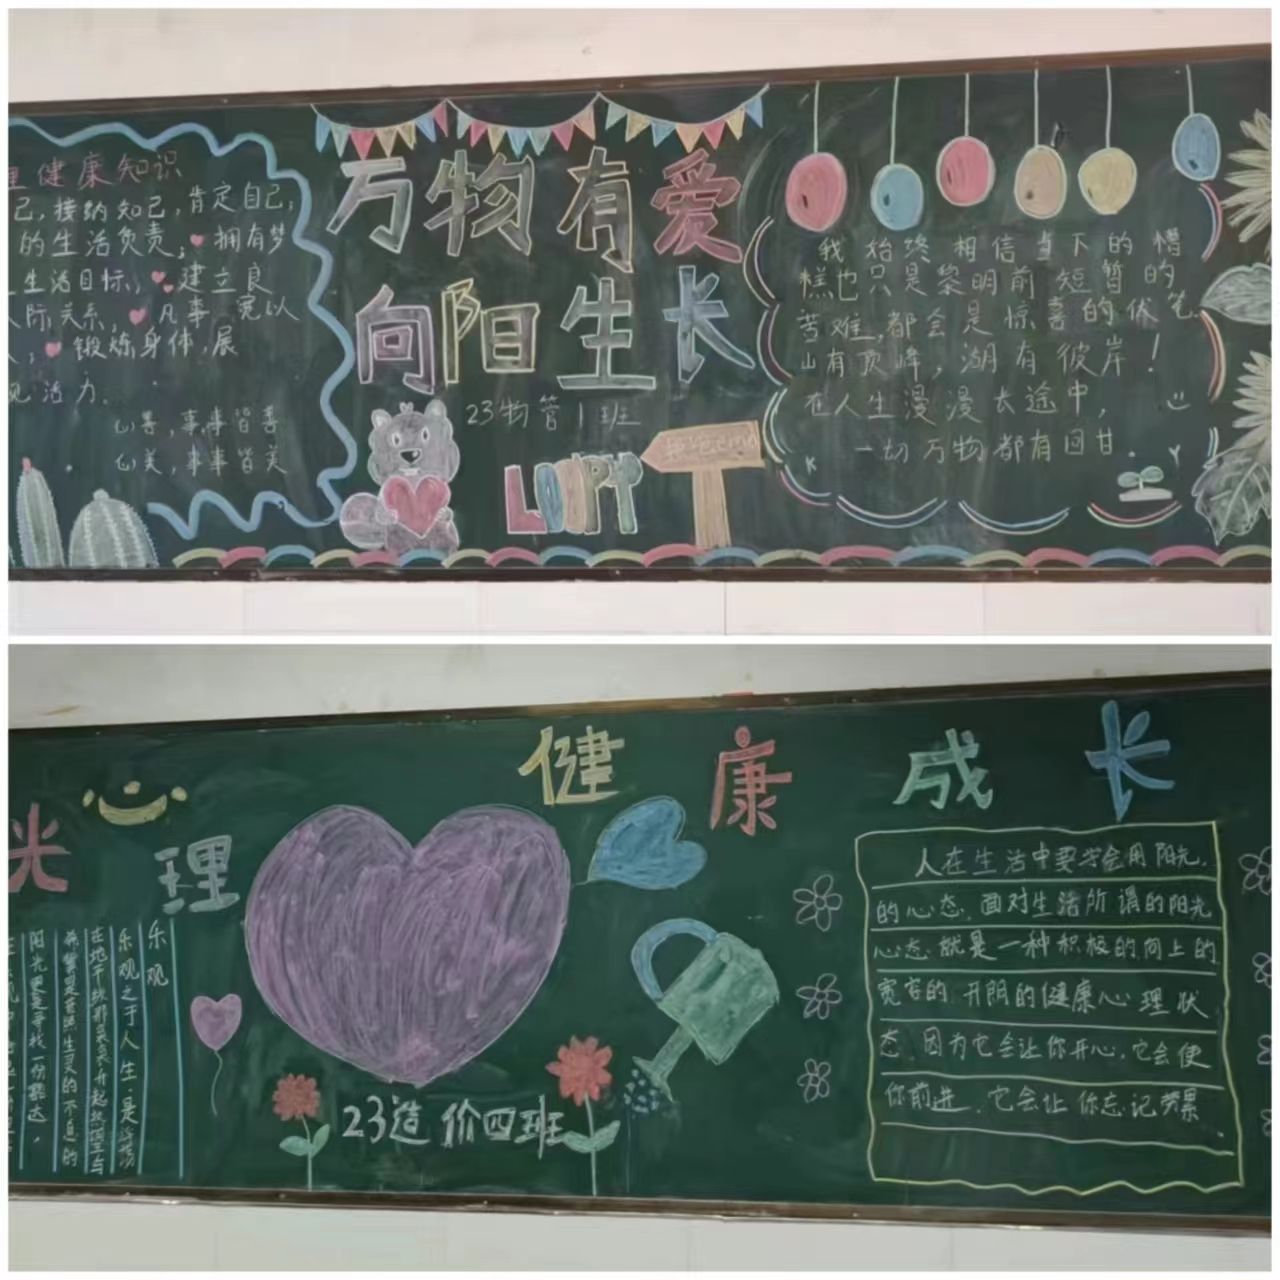 健康知识
己,接纳知己,肯定自己,
的生活负责;拥有梦
生活目标,建立良
际关系,凡事宽以
锻炼身体,展
现活力.
心善,事事皆善
心美,事事皆美
万物有爱
向阳生长
23物管1班
LOOPY
我始终相信当下的糟
糕也只是黎明前短暂的
苦难,都会是惊喜的伏笔
山有顶峰,湖有彼岸!
在人生漫漫长途中,
一切万物都有回甘.
光心理
健康成长
乐观
乐观之于人生,是
希冀是普照生灵的不息的
阳光更是寻找一份豁达,
23造价四班
人在生活中要学会用阳光,
的心态,面对生活所谓的阳光
心态就是一种积极的向上的
宽容的,开朗的健康心理状
态,因为它会让你开心,它会使
你前进,它会让你忘记劳累.